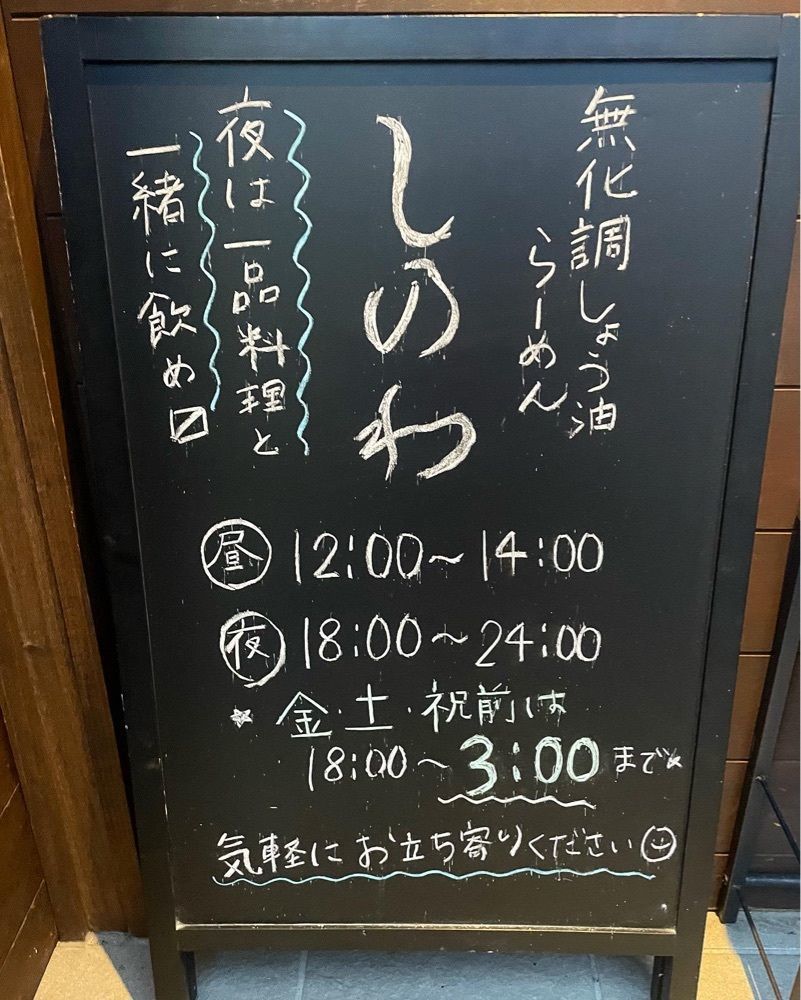 無化調しょう油
らーめん
しのわ
夜は一品料理と
一緒に飲め〼
昼 12:00～14:00
夜 18:00～24:00
☆ 金・土・祝前は
18:00～3:00まで☆
気軽にお立ち寄りください☺